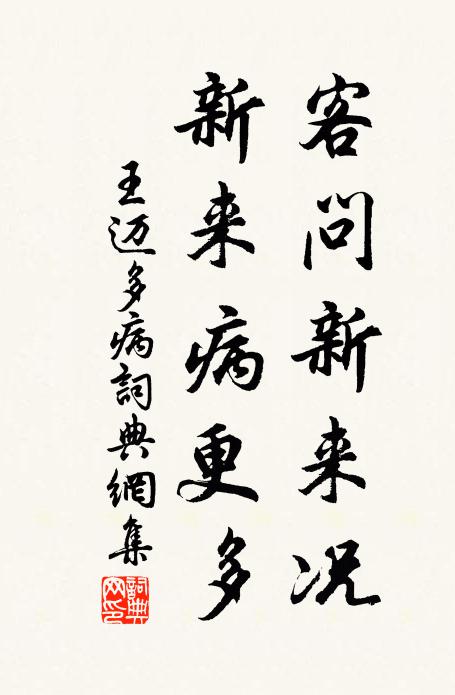 客問新来况
新来病更多
王迈多病詞典網集
詞典网印